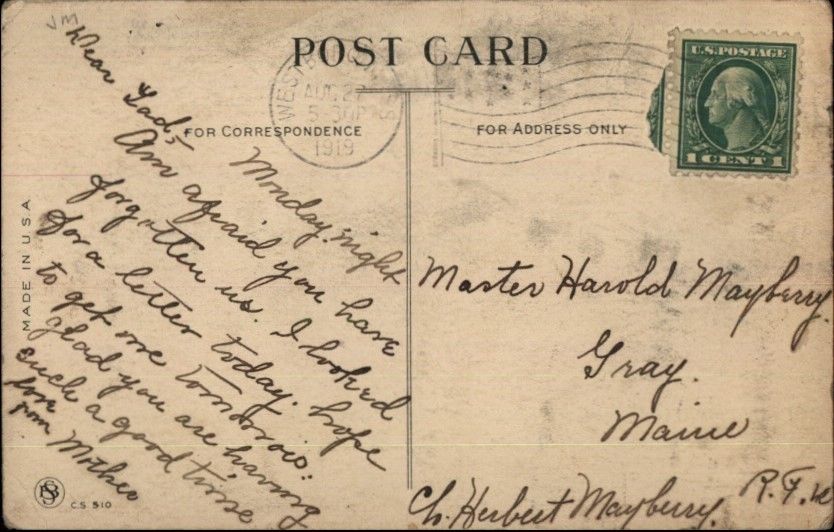 POST CARD
FOR CORRESPONDENCE
FOR ADDRESS ONLY
AUG 2
5-30P
1919
U.S. POSTAGE
1 CENT 1
MADE IN U.S.A.
Monday night
Dear Lad;-
Am afraid you have
forgotten us. I looked
for a letter today. hope
to get one tomorrow.
glad you are having
such a good time
love
from Mother
Master Harold Mayberry.
Gray.
Maine
Herbert Mayberry
C.S. 510